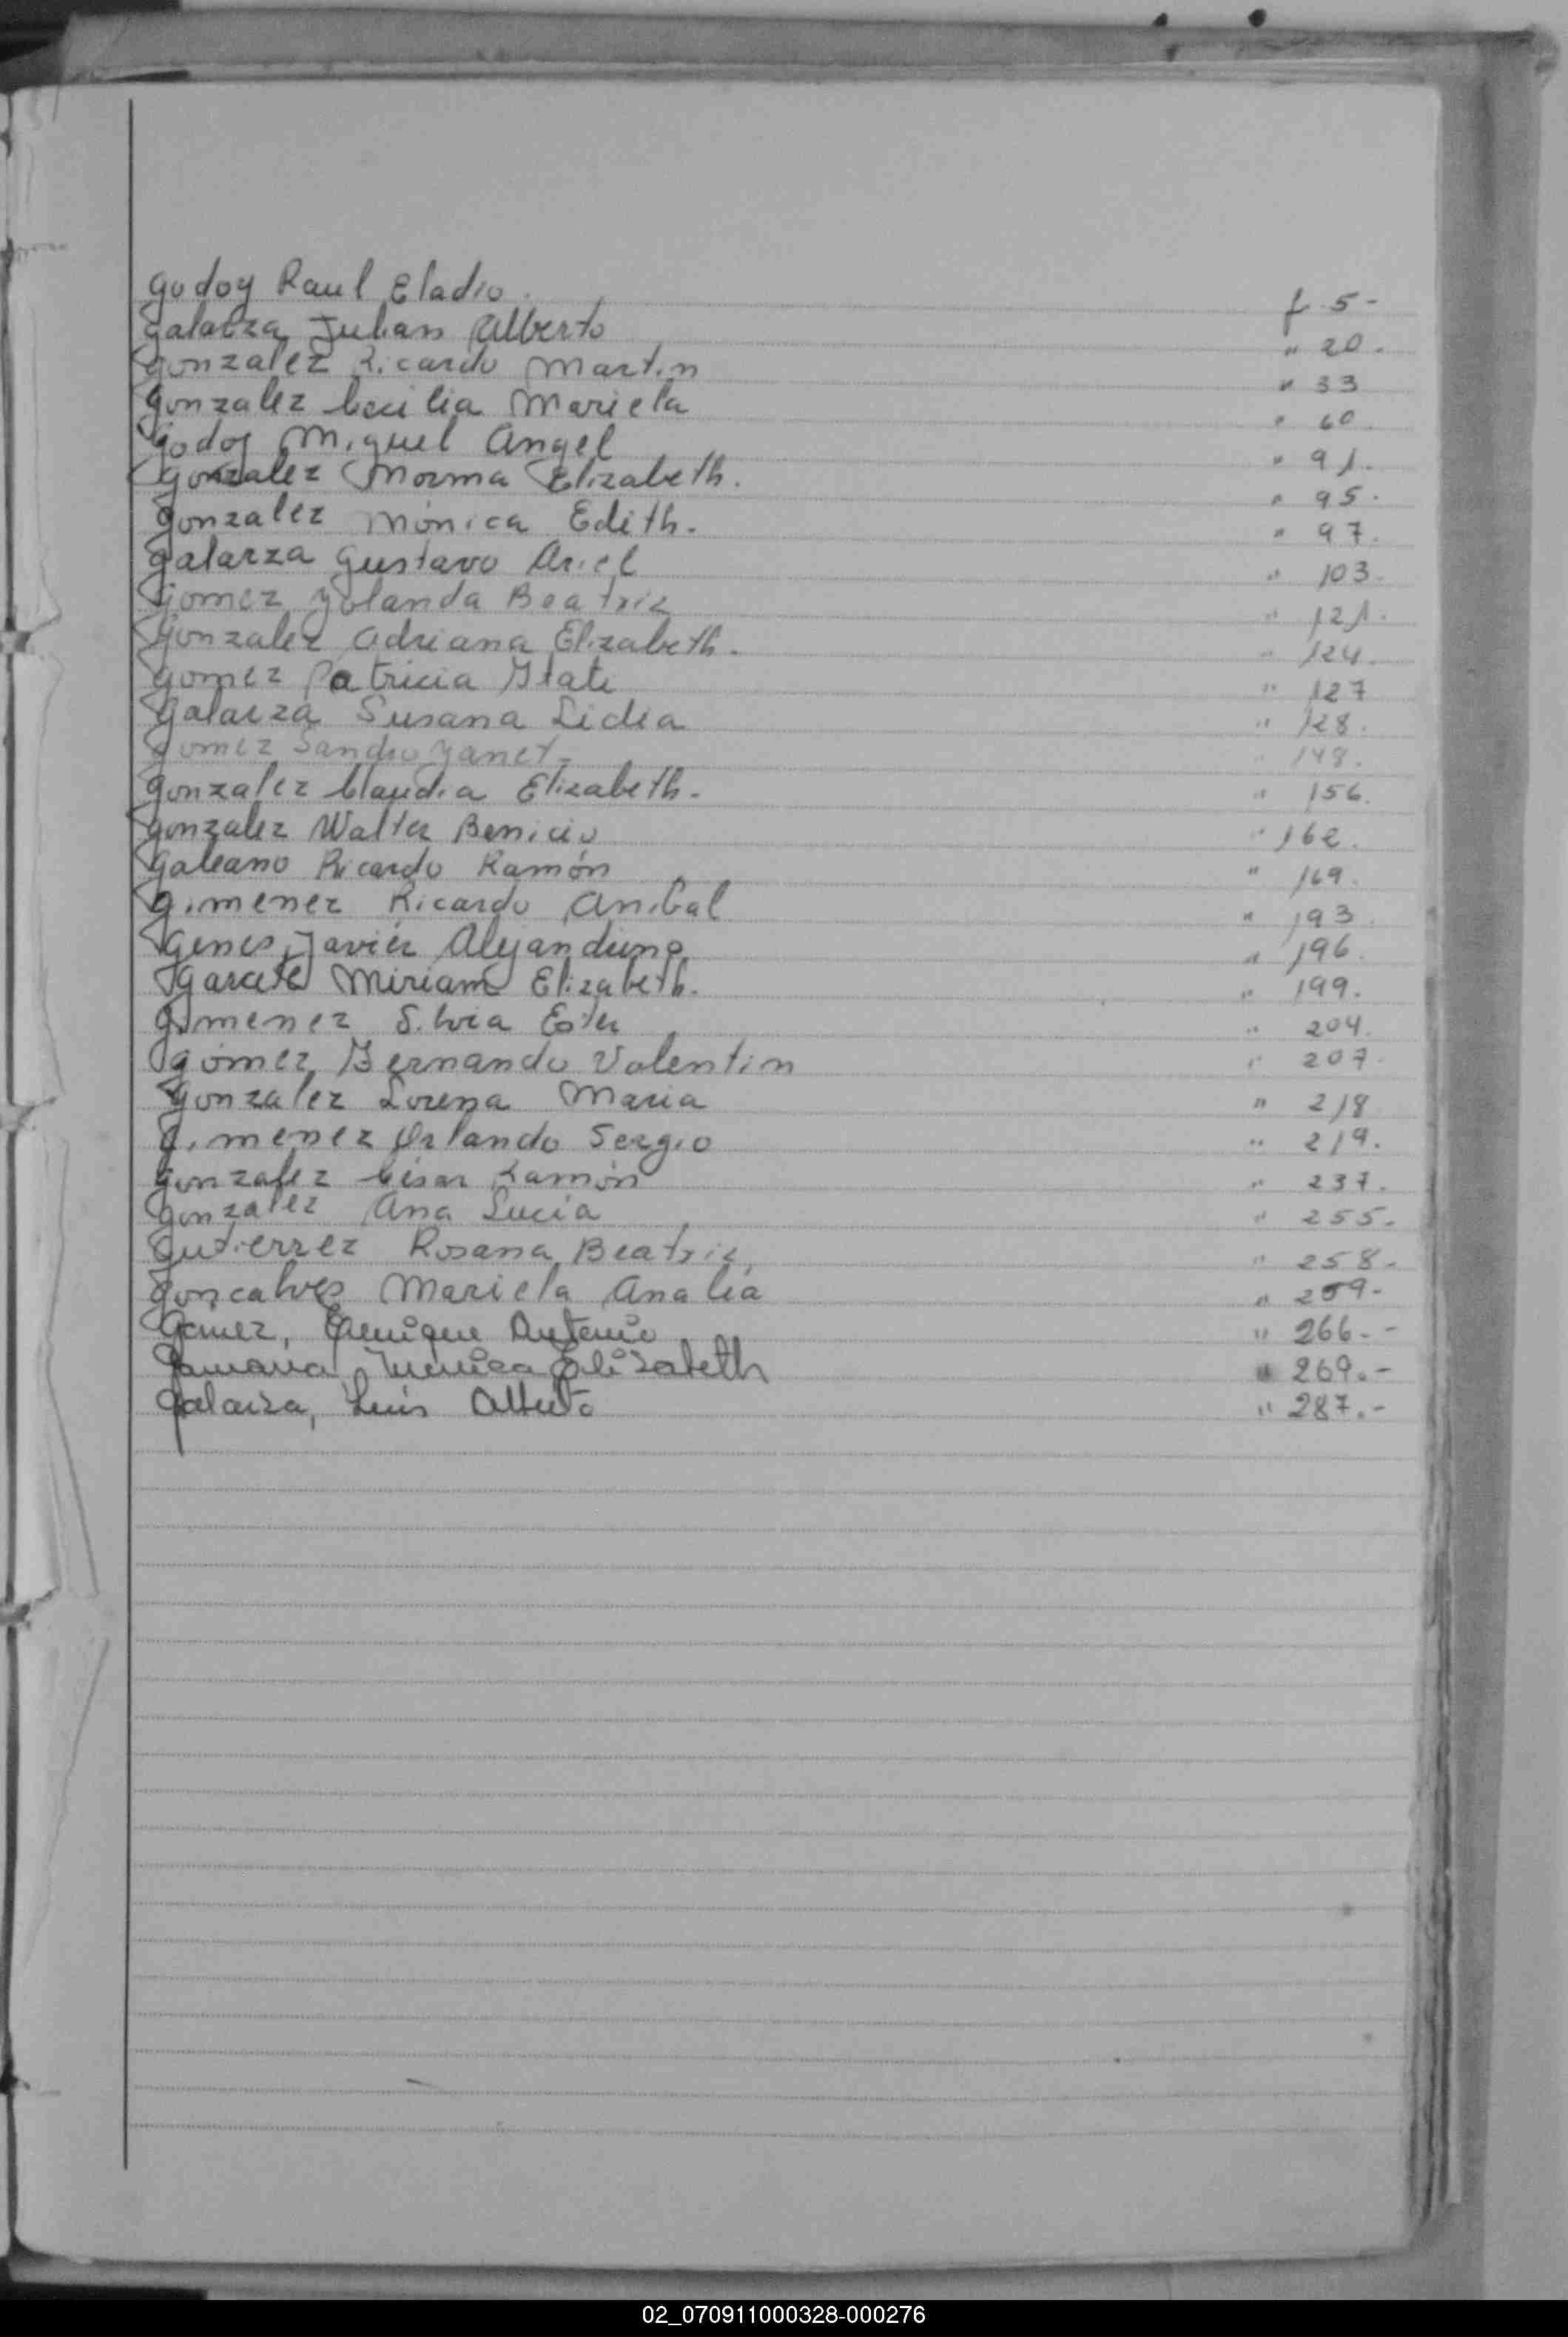 Godoy Raul Eladio. f. 5-
Galarza Julian Alberto " 20.
Gonzalez Ricardo Martin " 33
Gonzalez Cecilia Mariela " 60.
Godoy Miguel Angel " 91.
Gonzalez Norma Elizabeth. " 95.
Gonzalez Mónica Edith. " 97.
Galarza Gustavo Ariel " 103.
Gomez Yolanda Beatriz " 121.
Gonzalez Adriana Elizabeth. " 124.
Gomez Patricia Itati " 127
Galarza Susana Lidia " 128.
Gomez Sandro Yanet- " 148.
Gonzalez Claudia Elizabeth. " 156.
Gonzalez Walter Benicio " 162.
Galeano Ricardo Ramón " 169.
Gimenez Ricardo Anibal " 193.
Genes, Javiér " 196.
Garcete Miriam Elizabeth. " 199.
Gimenez Silvia Ester " 204.
Gómez Bernando Valentin " 207.
Gonzalez Lorena Maria " 218
Gimenez Orlando Sergio " 219.
Gonzalez César Ramón " 237.
Gonzalez Ana Lucía " 255.
Gutierrez Rosana Beatriz, " 258-
Gonçalves Mariela Analía " 259-
Gomez, Enrique Antonio " 266.-
Elizabeth " 269.-
Galarza, Luis Alberto " 287.-
02_070911000328-000276